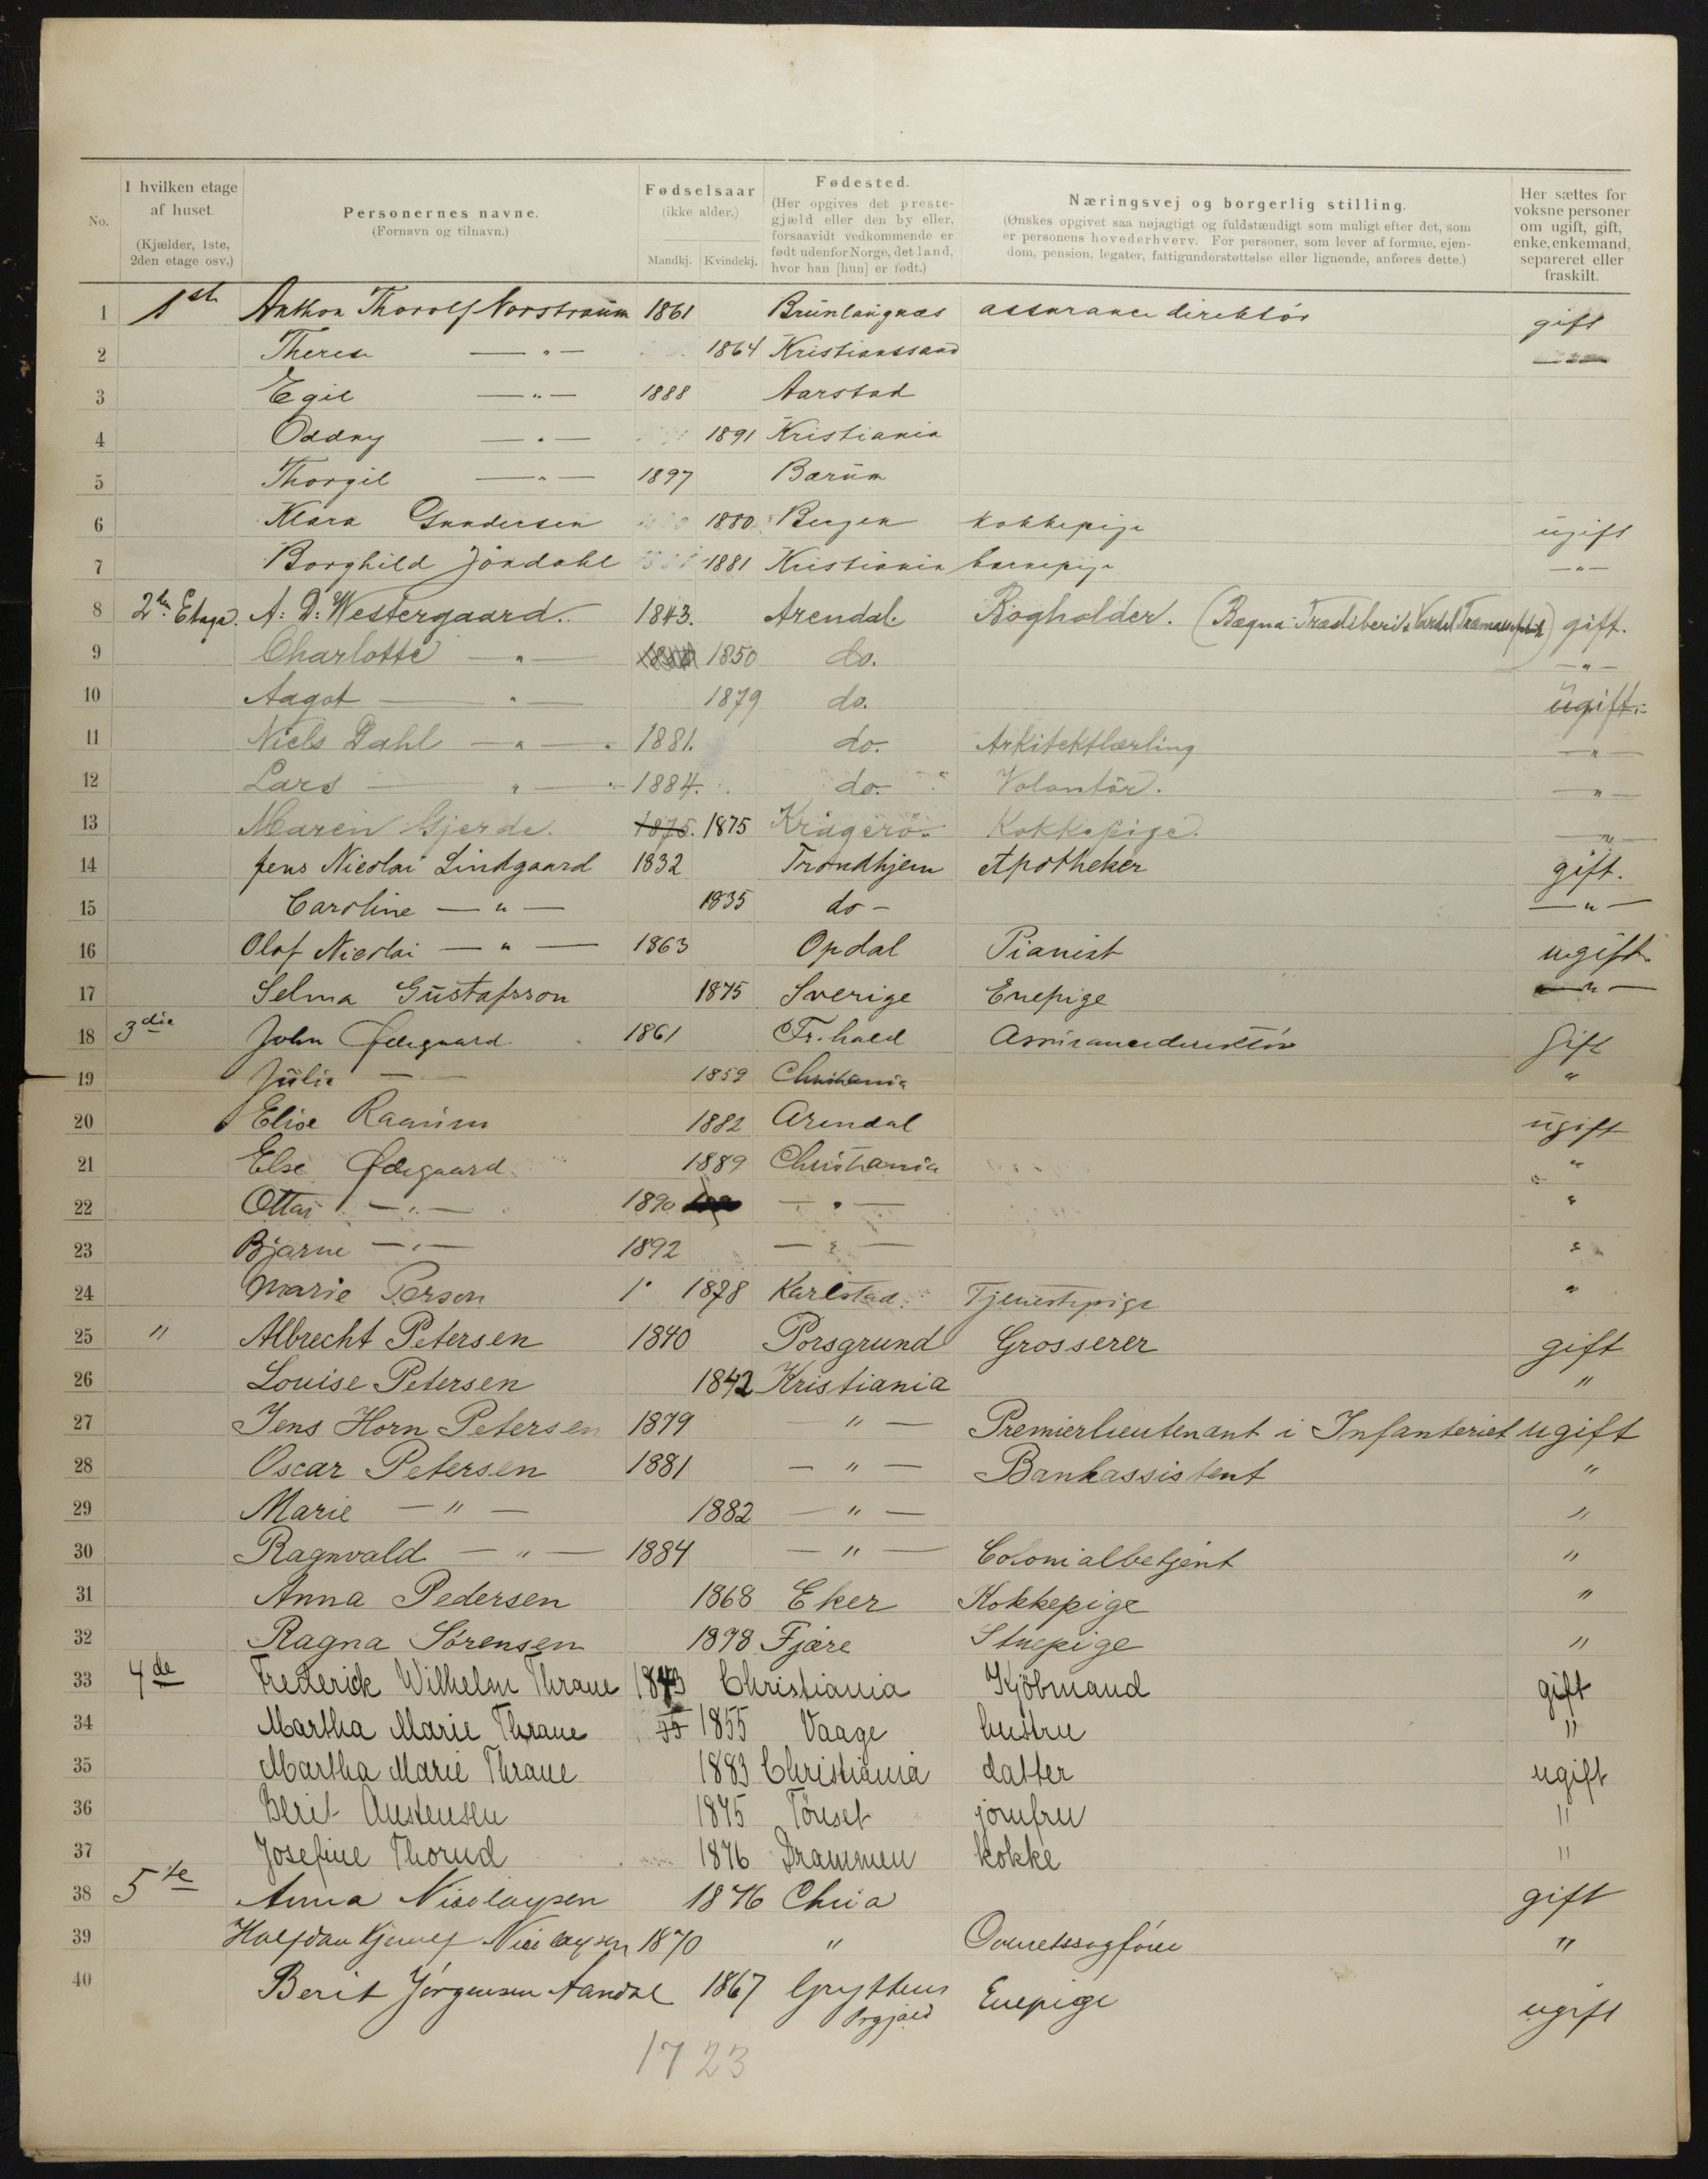 No.
I hvilken etage af huset. (Kjælder, 1ste, 2den etage osv.)
Personernes navne. (Fornavn og tilnavn.)
Fødselsaar (ikke alder.) Mandkj. Kvindekj.
Fødested. (Her opgives det prestegjæld eller den by eller, forsaavidt vedkommende er født udenfor Norge, det land, hvor han [hun] er født.)
Næringsvej og borgerlig stilling. (Ønskes opgivet saa nøjagtigt og fuldstændigt som muligt efter det, som er personens hovederhverv. For personer, som lever af formue, ejendom, pension, legater, fattigunderstøttelse eller lignende, anføres dette.)
Her sættes for voksne personer om ugift, gift, enke, enkemand, separeret eller fraskilt.
1 1st Anthon Thorolf Norstraum 1861 Brunlangnæs assurance direktör gift
2 Therese —"— 1864 Kristianssand
3 Egil —"— 1888 Aarstad
4 Oddny —"— 1891 Kristiania
5 Thorgil —"— 1897 Bærum
6 Klara Gundersen 1880 Bergen kokkepige ugift
7 Borghild Jöndahl 1881 Kristiania barnepige —"—
8 2den Etage. A: D: Westergaard. 1843. Arendal. Bogholder. (Bægna Træsliberi & gift.
9 Charlotte —"— 1850 do. —"—
10 Aagot —"— 1879 do. ugift.
11 Niels Dahl —"— 1881. do. Arkitektlærling —"—
12 Lars —"— 1884. do. Volontør. —"—
13 Maren Gjerde. 1875. 1875 Kragerö. Kokkepige. —"—
14 Jens Nicolai Lindgaard 1832 Trondhjem Apotheker gift.
15 Caroline —"— 1835 do - —"—
16 Olaf Nicolai —"— 1863 Opdal Pianist ugift.
17 Selma Gustafsson 1875 Sverige Enepige —"—
18 3die John Ødegaard 1861 Fr.hald Assurancedirektör gift
19 Julie — — 1859 Christiania "
20 Elise Raanum 1882 Arendal ugift
21 Else Ødegaard 1889 Christiania "
22 Ottar —"— 1890 —"— "
23 Bjarne —"— 1892 —"— "
24 Marie Person 1878 Karlstad. Tjenestepige "
25 " Albrecht Petersen 1840 Porsgrund Grosserer gift
26 Louise Petersen 1842 Kristiania "
27 Jens Horn Petersen 1879 " — Premierlieutenant i Infanteriet ugift
28 Oscar Petersen 1881 — " — Bankassistent "
29 Marie — " — 1882 — " — "
30 Ragnvald — " — 1884 — " — Colonialbetjent "
31 Anna Pedersen 1868 Eker Kokkepige "
32 Ragna Sørensen 1878 Fjære Stuepige "
33 4de Frederick Wilhelm Thrane 1843 Christiania Kjöbmand gift
34 Martha Marie Thrane 55 1855 Vaage hustru "
35 Martha Marie Thrane 1883 Christiania datter ugift
36 Berit Austensen 1875 Tönset jomfru "
37 Josefine Thorud 1876 Drammen kokke "
38 5te Anna Nicolaysen 1876 Chria gift
39 Halfdan Nicolaysen 1870 " Overretssagfører "
40 Berit Jörgensen Aandal 1867 Gryttens Prgjæld Enepige ugift
17 23